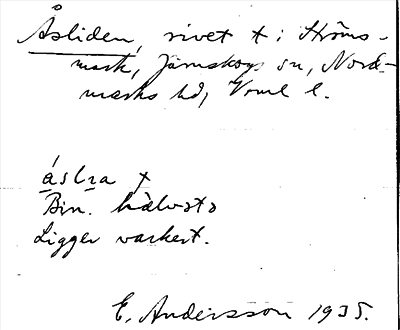 Åsliden, rivet t i Ströms-
mark, Järnskogs sn, Nord-
marks hd, Vrml l.
åslia t
Bin.
Ligger vackert.
E. Andersson 1935.